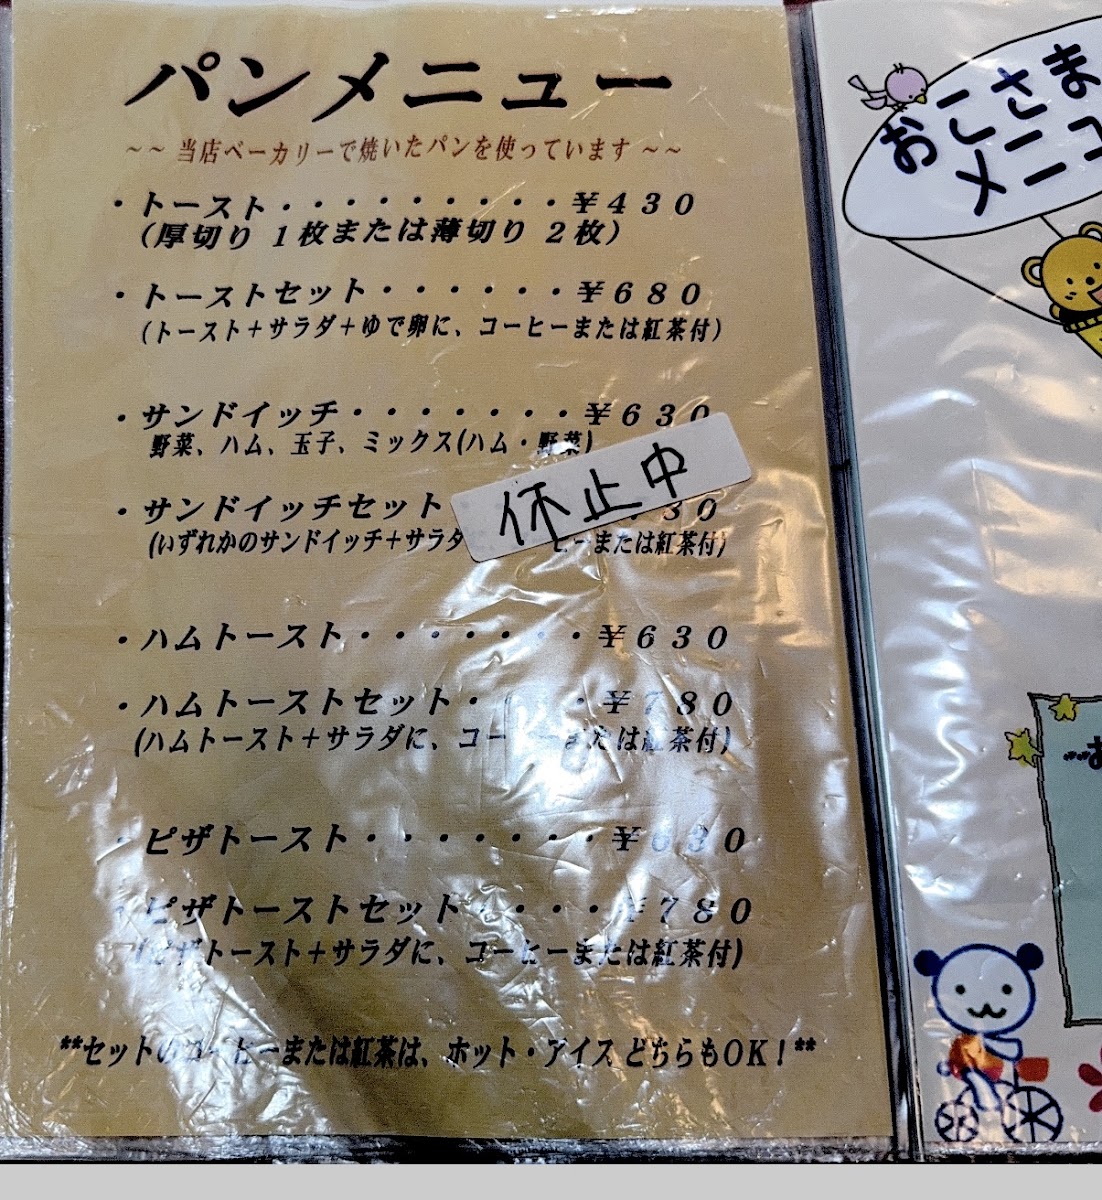 パンメニュー
~~ 当店ベーカリーで焼いたパンを使っています ~~
・トースト・・・・・・・・・¥430
(厚切り 1枚または薄切り 2枚)
・トーストセット・・・・・・¥680
(トースト+サラダ+ゆで卵に、コーヒーまたは紅茶付)
・サンドイッチ・・・・・・・¥630
野菜、ハム、玉子、ミックス(ハム・野菜)
休止中
・サンドイッチセット 30
(いずれかのサンドイッチ+サラダ ヒーまたは紅茶付)
・ハムトースト・・・・・・・¥630
・ハムトーストセット・・・¥780
(ハムトースト+サラダに、コー または紅茶付)
・ピザトースト・・・・・・・¥630
・ピザトーストセット・・・・¥780
(ピザトースト+サラダに、コーヒーまたは紅茶付)
**セットのコーヒーまたは紅茶は、ホット・アイス どちらもOK！**
おこさま
メニュ
お